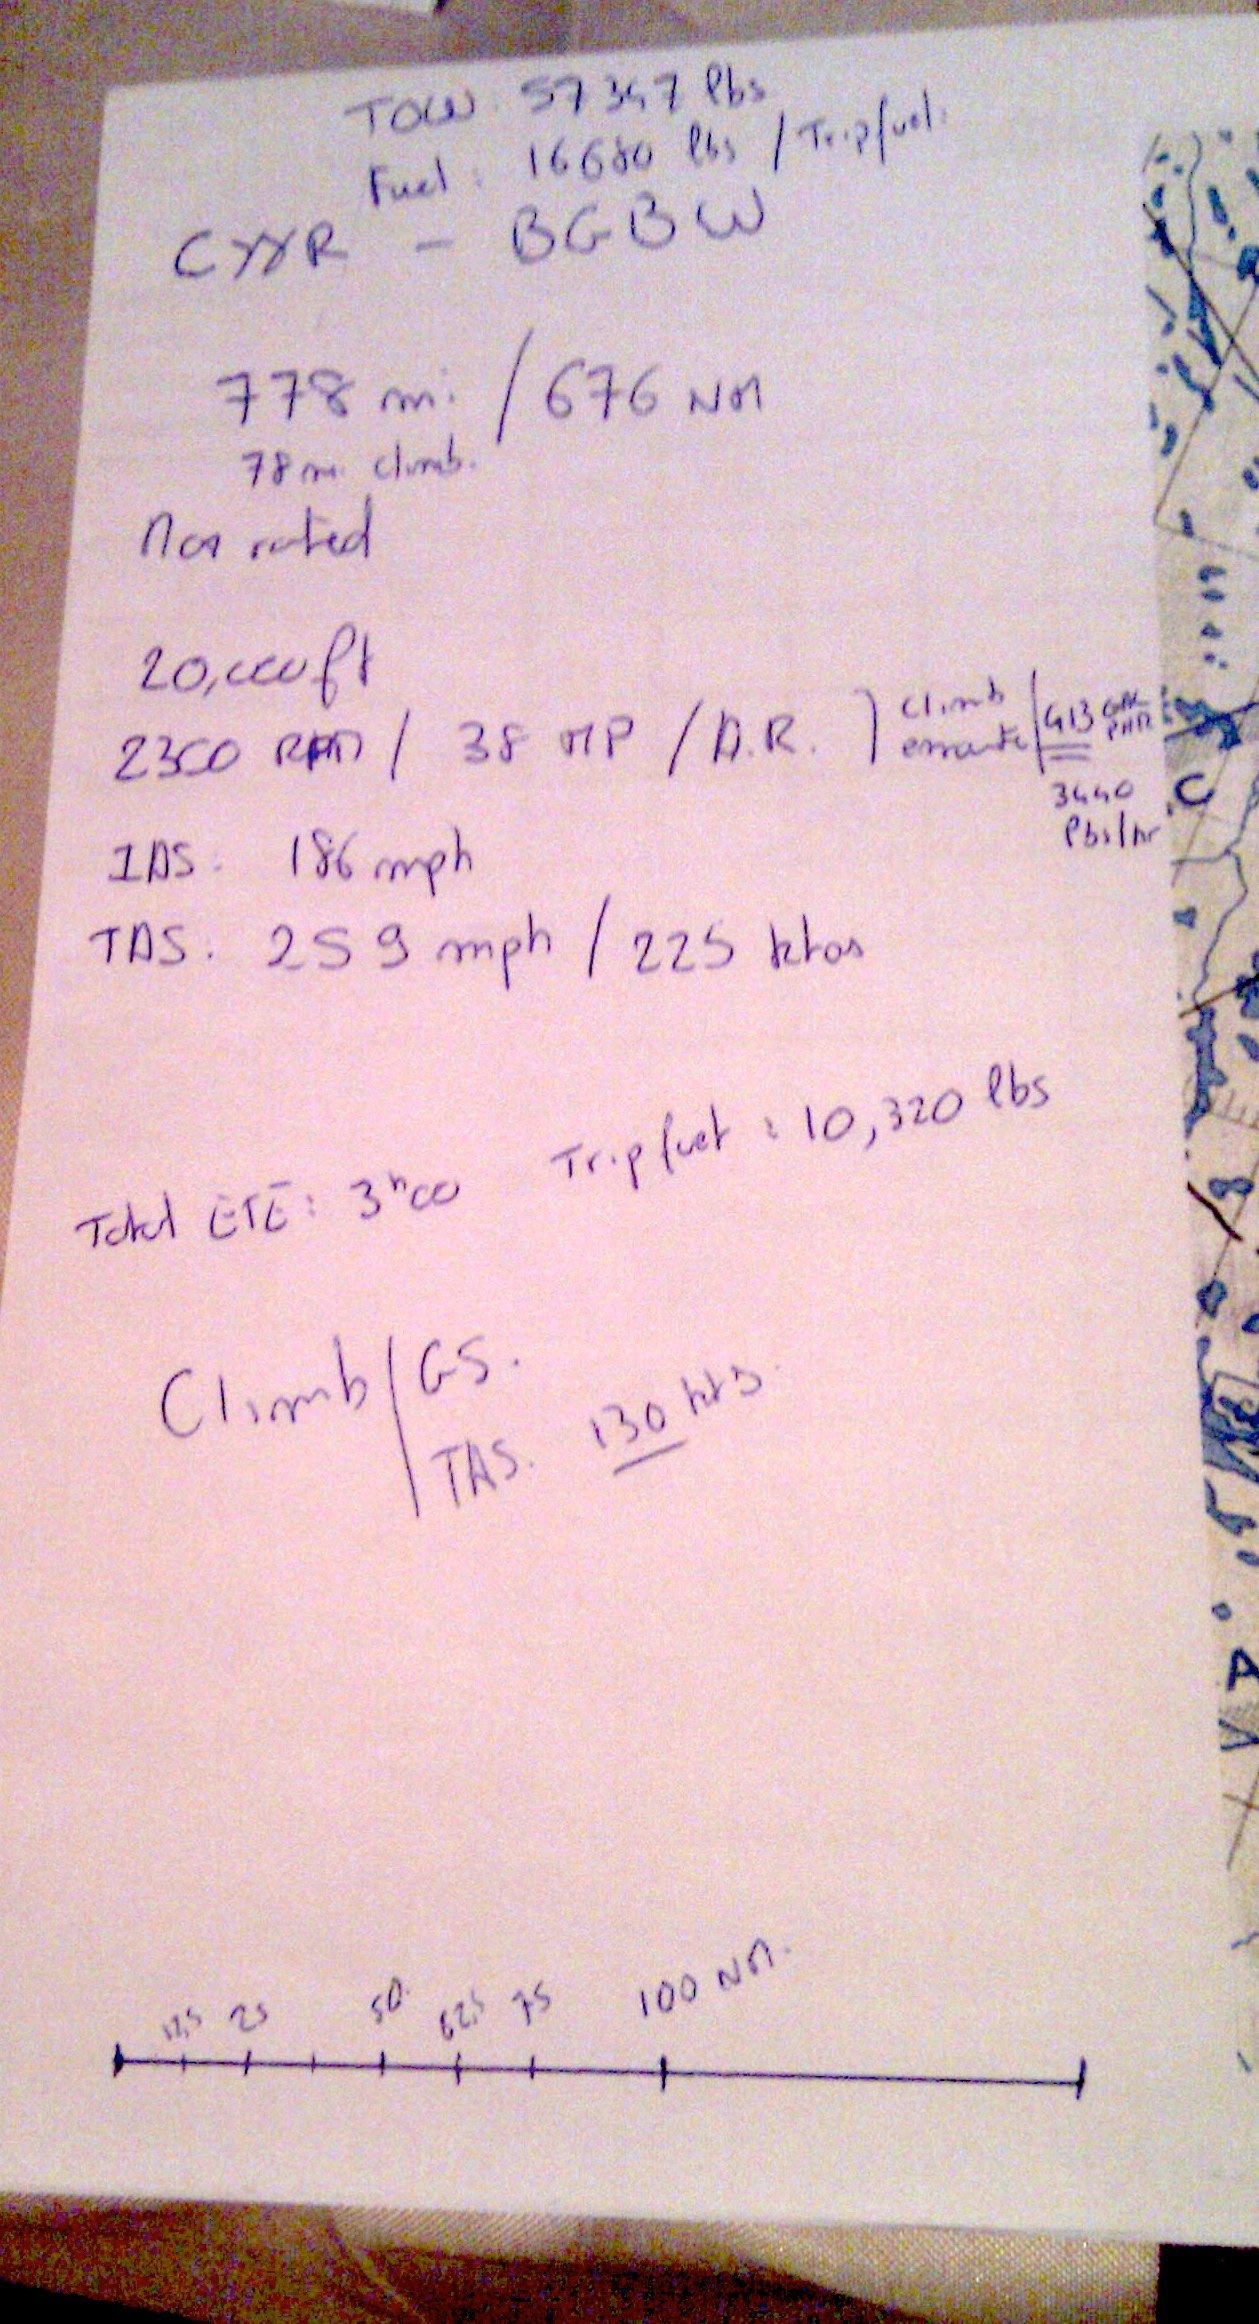 TOW: 57347 lbs
Fuel: 16680 lbs / Tripfuel.
CYYR - BGBW
778 mi / 676 NM
78 mi climb.
Max rated
20,000 ft
2350 RPM / 38 MP / A.R.
climb
413 GAL
3440
lbs/hr
C
IAS: 186 mph
TAS. 259 mph / 225 ktas
Total ETE: 3h00 Trip fuel: 10,320 lbs
Climb / GS.
TAS. 130 kts.
A
12,5 25 50 62,5 75 100 NM.